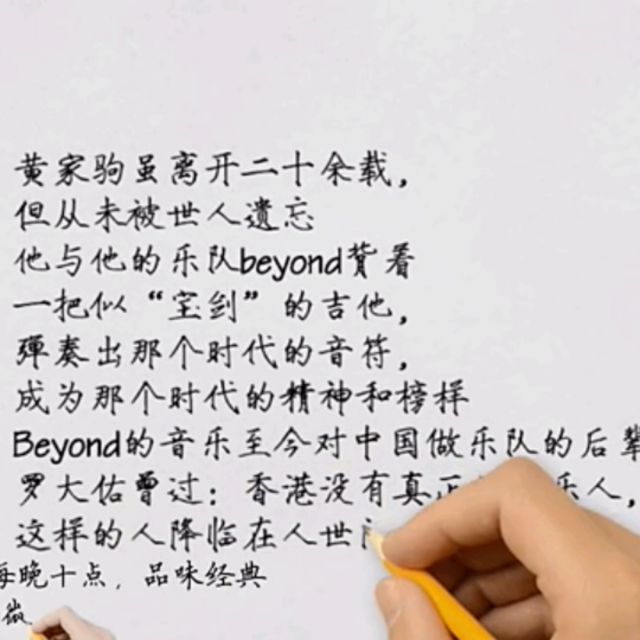 黄家驹虽离开二十余载，
但从未被世人遗忘
他与他的乐队beyond背着
一把似“宝剑”的吉他，
弹奏出那个时代的音符，
成为那个时代的精神和榜样
Beyond的音乐至今对中国做乐队的后辈
罗大佑曾过：香港没有真正 乐人，
这样的人降临在人世
每晚十点，品味经典
做